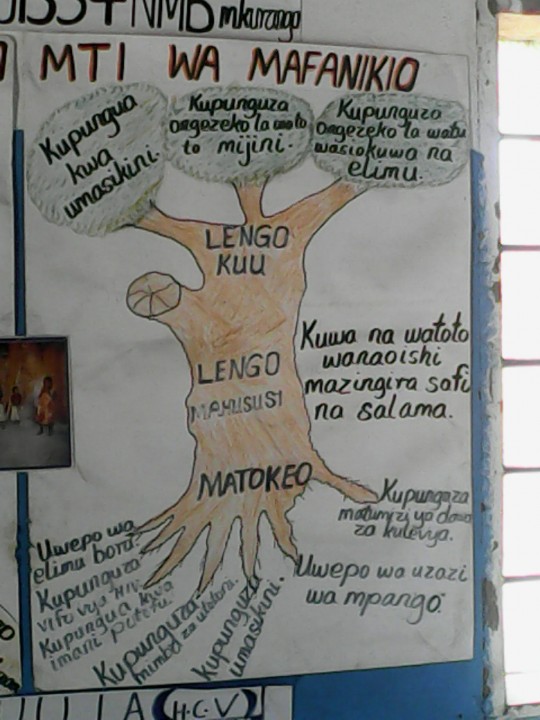 + NMB mkuranga
MTI WA MAFANIKIO
Kupungua
kwa
umasikini.
Kupunguza
ongezeko la wato
to mijini.
Kupunguza
ongezeko la watu
wasiokuwa na
elimu.
LENGO
KUU
LENGO
MAHUSUSI
Kuwa na watoto
wanaoishi
mazingira safi
na salama.
MATOKEO
Kupunguza
matumizi ya dawa
za kulevya.
Uwepo wa uzazi
wa mpango.
Uwepo wa
elimu bora.
Kupunguza
vifo vya HIV.
Kupungua kwa
imani potofu.
Kupunguza
mimba za utotoni.
Kupunguza
umasikini.
(H.C.V)